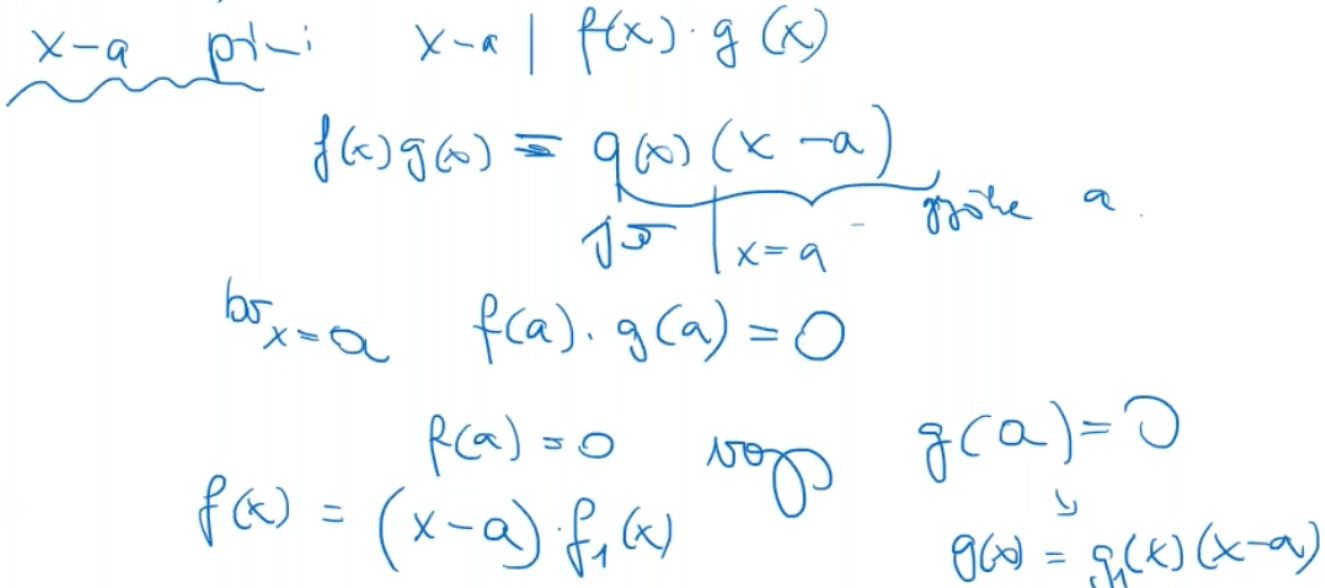 x-a prím: x-a | f(x)·g(x)
f(x)g(x) = q(x)(x-a)
x=a gyöke a.
x=a f(a)·g(a)=0
f(a)=0 vagy g(a)=0
f(x) = (x-a)·f₁(x) g(x) = g₁(x)(x-a)